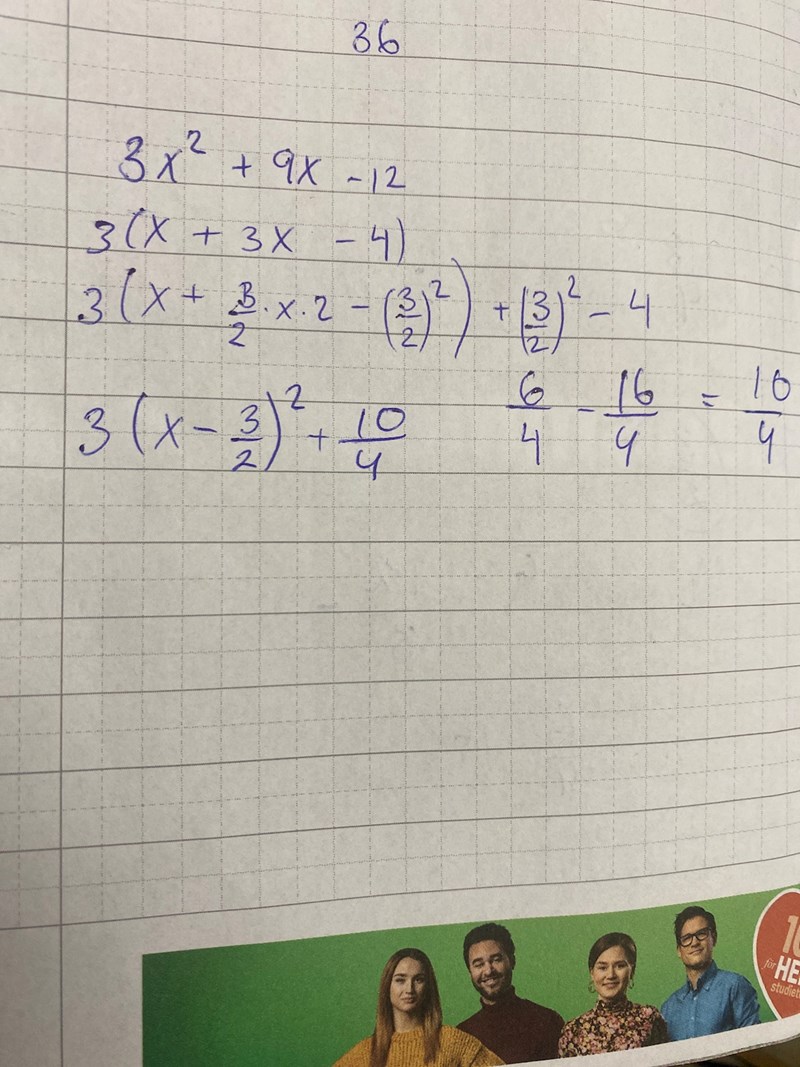 36
3x² + 9x - 12
3(x + 3x - 4)
3(x + 3/2 · x · 2 - (3/2)²) + (3/2)² - 4
3(x - 3/2)² + 10/4
6/4 - 16/4 = 10/4
för
HE
studie